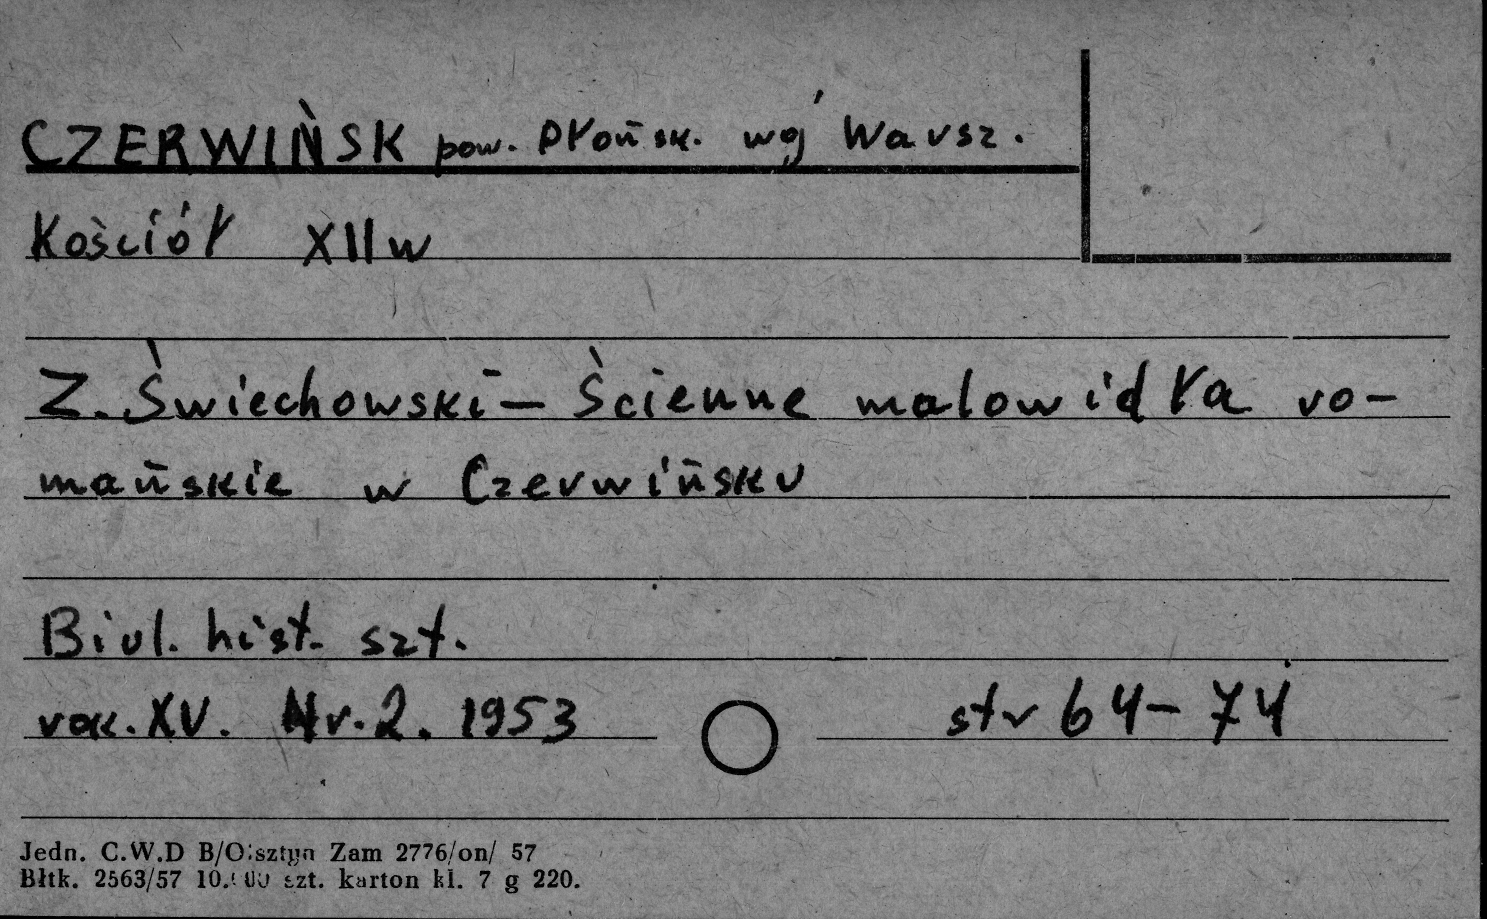 CZERWIŃSK pow. Płońsk. woj Warsz.
Kościół XII w
Z. Świechowski – Ścienne malowidła ro-
mańskie w Czerwińsku
Biul. hist. szt.
rok. XV. Nr. 2. 1953 str 64–74
Jedn. C.W.D B/Olsztyn Zam 2776/on/ 57
Błtk. 2563/57 szt. karton kl. 7 g 220.